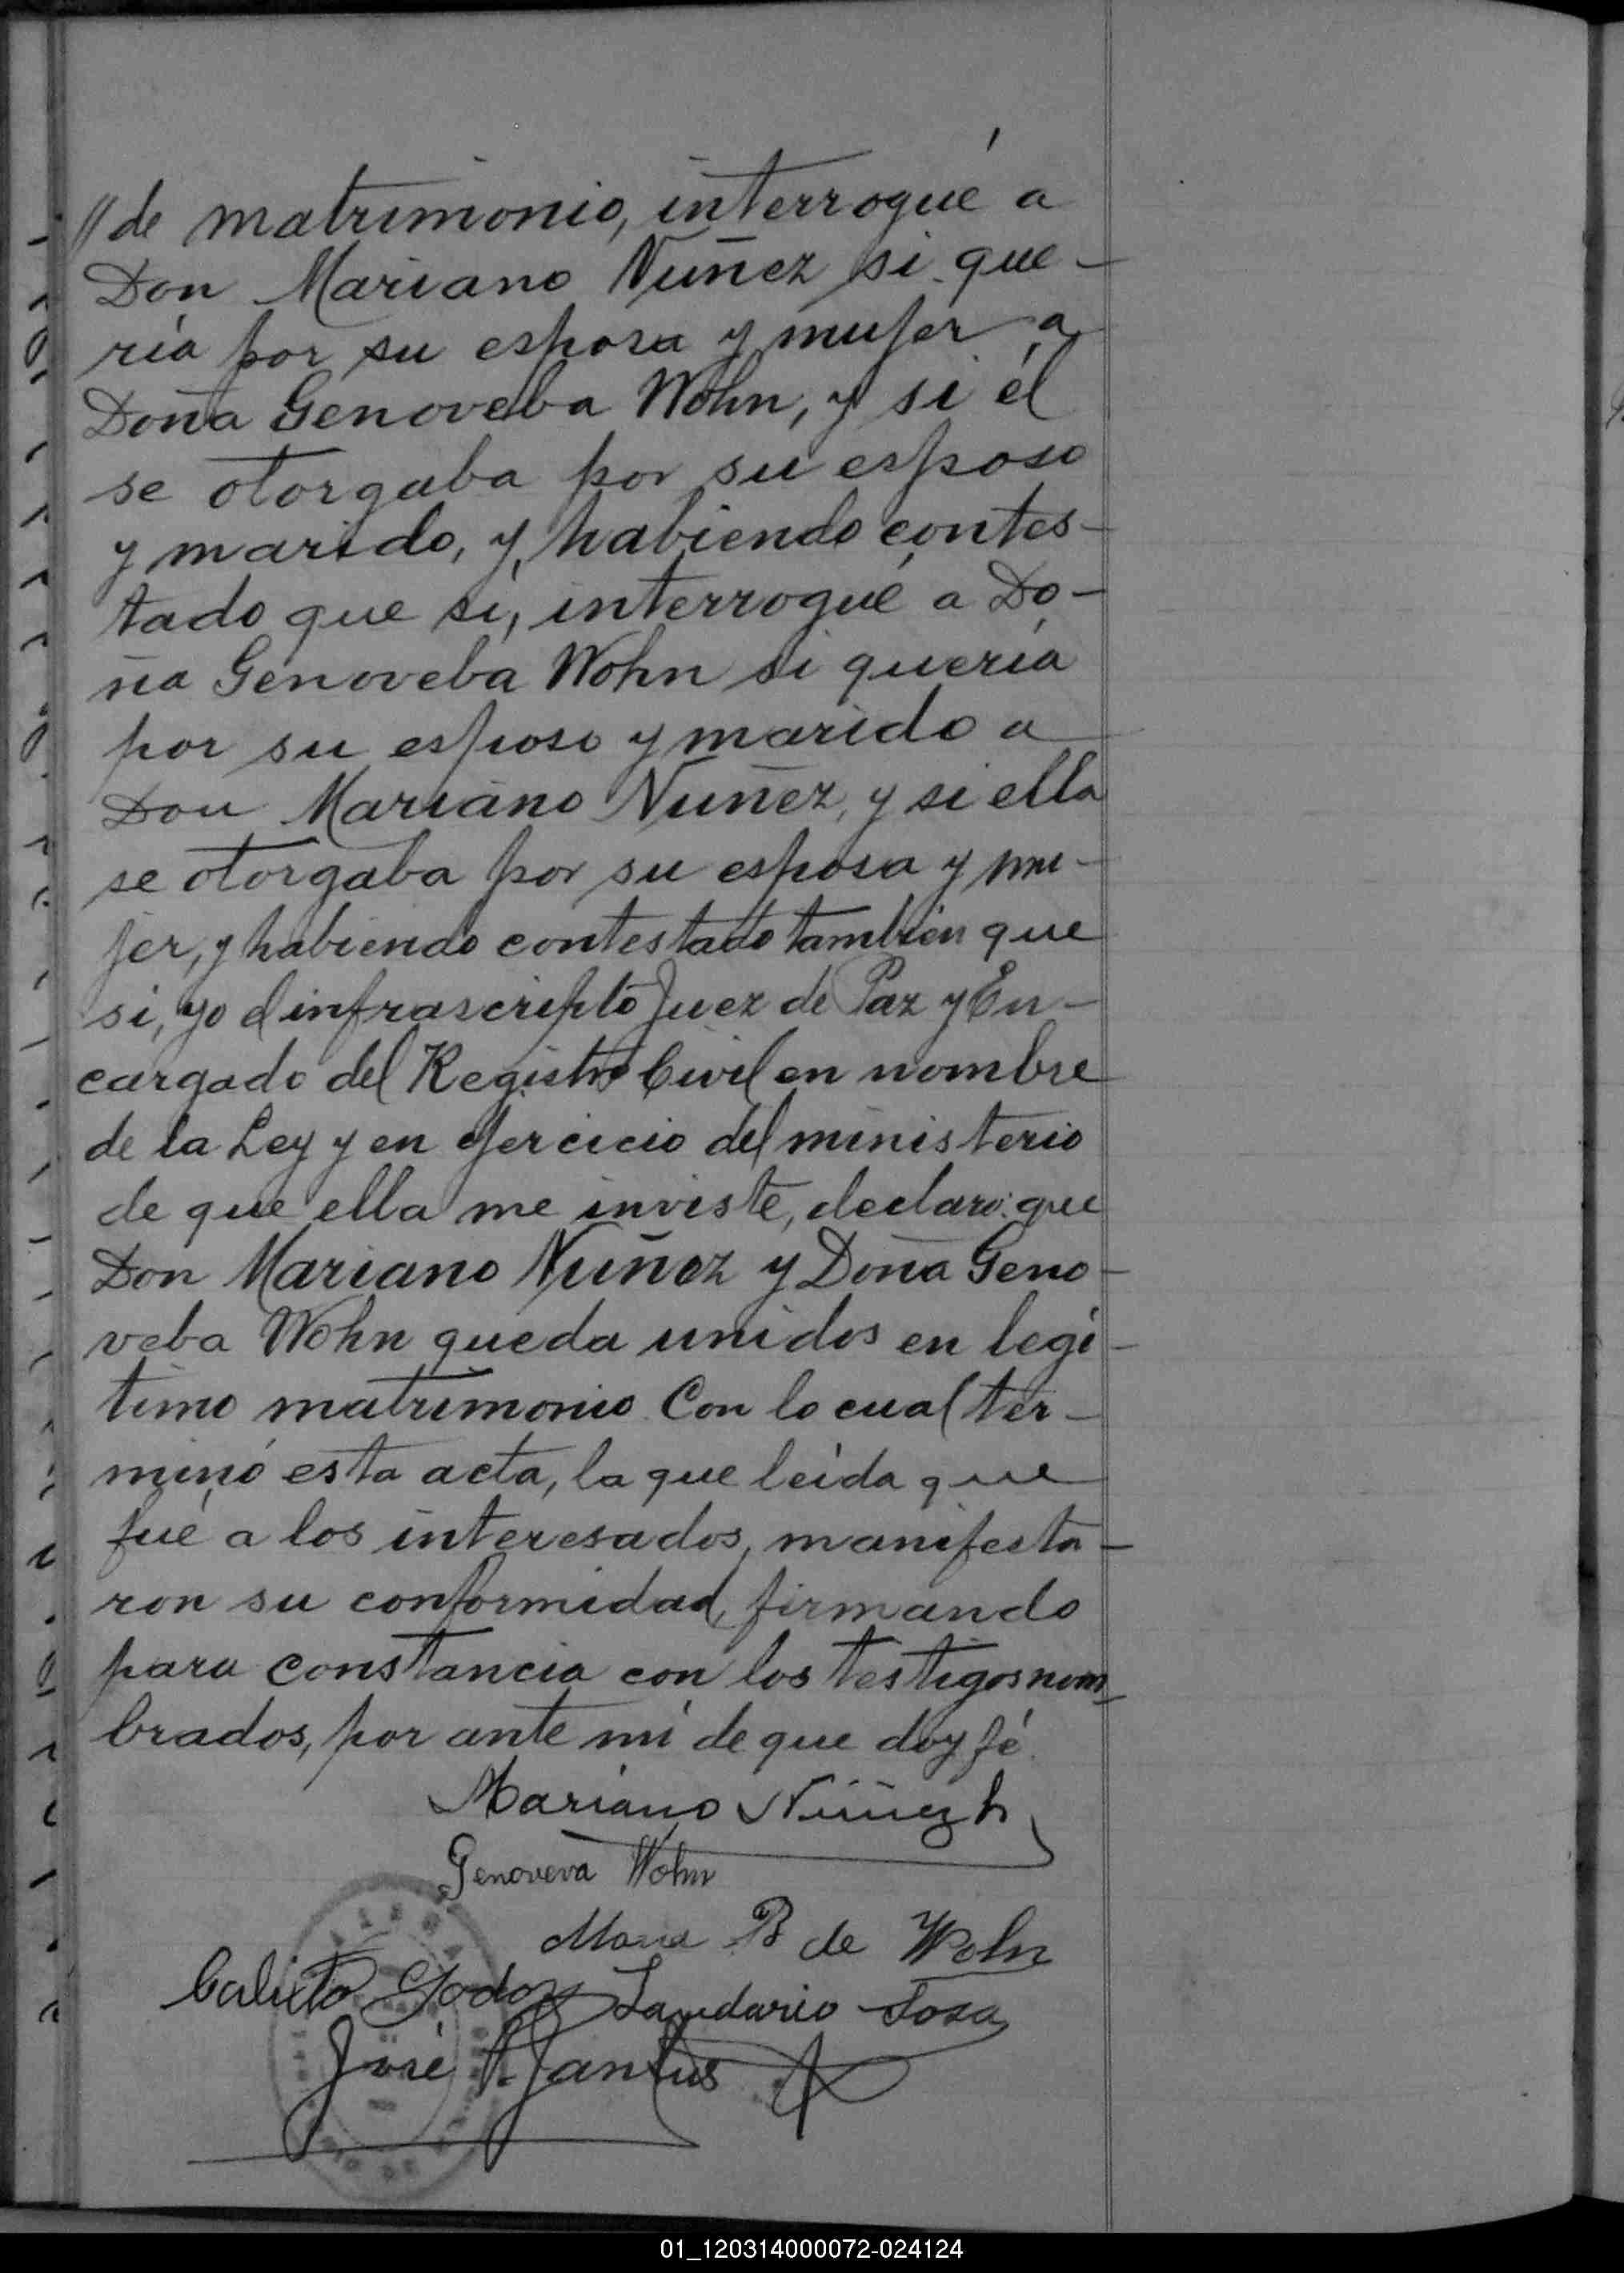 // de matrimonio, interrogué a
Don Mariano Nuñez si que-
ría por su esposa y mujer a
Doña Genoveba Wohn, y si él
se otorgaba por su esposo
y marido, y habiendo contes-
tado que si, interrogué a Do-
ña Genoveba Wohn si quería
por su esposo y marido a
Don Mariano Nuñez, y si ella
se otorgaba por su esposa y mu-
jer, y habiendo contestado también que
si, yo el infrascripto Juez de Paz y En-
cargado del Registro Civil en nombre
de la Ley y en ejercicio del ministerio
de que ella me inviste, declaro: que
Don Mariano Nuñez y Doña Geno-
veba Wohn queda unidos en legí-
timo matrimonio. Con lo cual ter-
minó esta acta, la que leída que
fué a los interesados, manifesta-
ron su conformidad, firmando
para constancia con los testigos nom-
brados, por ante mi de que doy fé.
Mariano Núñez h
Genoveva Wohn
Maria B de Wohn
Calixto Godoy Landario Sosa
José
01_120314000072-024124